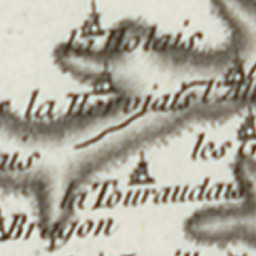 la Holais
la Hervojais l'Al
les G
ais
la Touraudais
Bragon